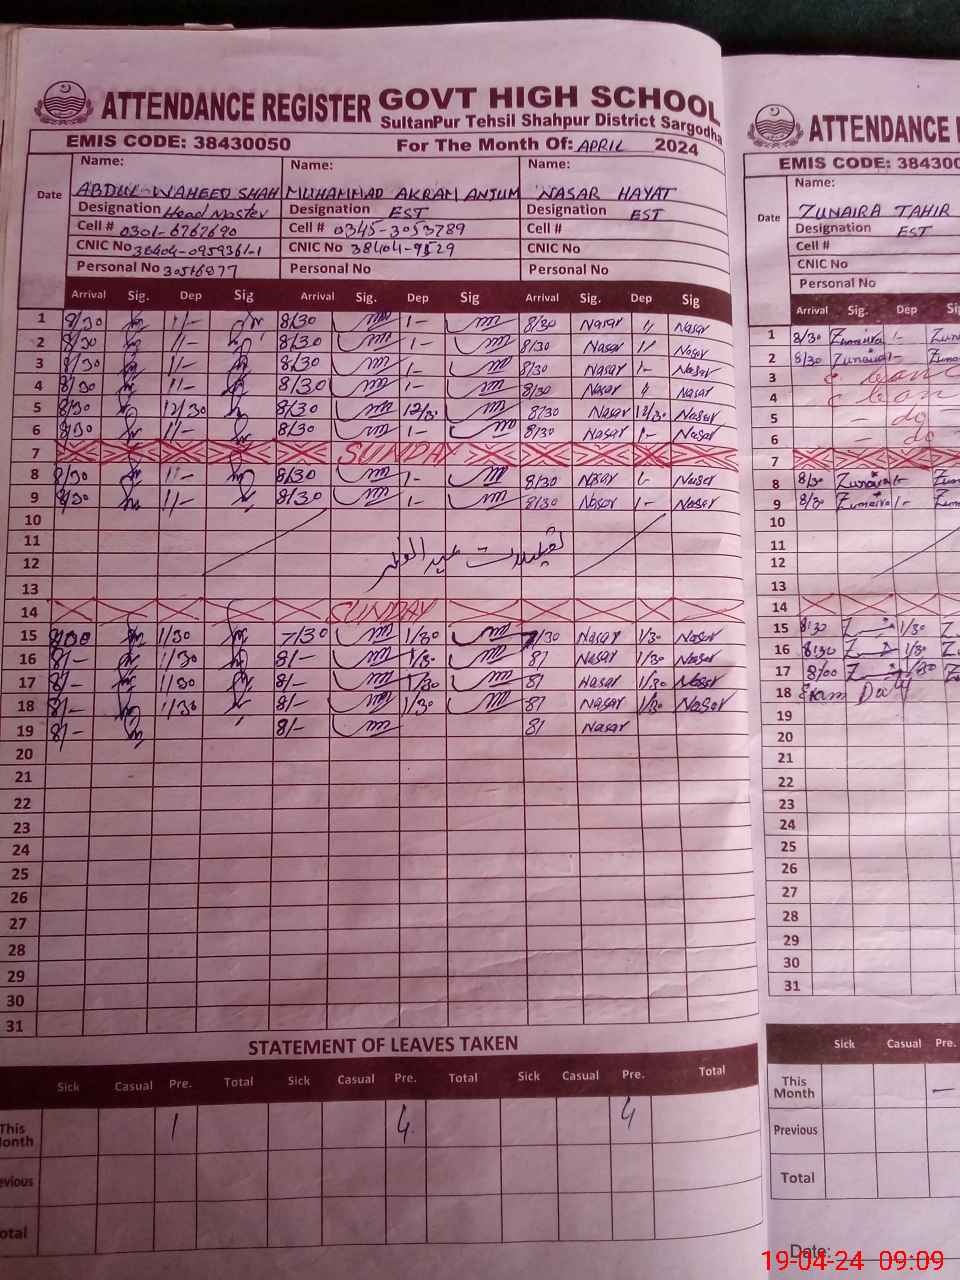 ATTENDANCE REGISTER GOVT HIGH SCHOOL
SultanPur Tehsil Shahpur District Sargodha
EMIS CODE: 38430050 For The Month Of: APRIL 2024
Date Name: Name: Name:
ABDUL-WAHEED SHAH MUHAMMAD AKRAM ANJUM NASAR HAYAT
Designation Head Master Designation EST Designation EST
Cell # 0301-6767690 Cell # 0345-3053789 Cell #
CNIC No 38404-0959361-1 CNIC No 38404- CNIC No
Personal No Personal No Personal No
Arrival Sig. Dep Sig Arrival Sig. Dep Sig Arrival Sig. Dep Sig
1 8/30 1/- 8/30 1- 8/30 Nasar 1/ Nasar
2 8/30 1/- 8/30 1- 8/30 Nasar 1/ Nasar
3 8/30 1/- 8/30 1- 8/30 Nasar 1- Nasar
4 8/30 1/- 8/30 1- 8/30 Nasar Nasar
5 8/30 12/30 8/30 12/30 8/30 Nasar 12/30 Nasar
6 8/30 1/- 8/30 1- 8/30 Nasar 1- Nasar
7 SUNDAY
8 8/30 1/- 8/30 1- 8/30 Nasar Nasar
9 8/30 1/- 8/30 1- 8/30 Nasar 1- Nasar
10
11
12 تعطیلات عید الفطر
13
14 SUNDAY
15 1/30 7/30 1/30 7/30 Nasar 1/30 Nasar
16 8/- 1/30 8/- 1/30 8/ Nasar 1/30 Nasar
17 8/- 1/30 8/- 1/30 8/ Nasar 1/30 Nasar
18 8/- 1/30 8/- 1/30 8/ Nasar 1/30 Nasar
19 8/- 8/- 8/ Nasar
20
21
22
23
24
25
26
27
28
29
30
31
STATEMENT OF LEAVES TAKEN
Sick Casual Pre. Total Sick Casual Pre. Total Sick Casual Pre. Total
This Month 1 4 4
evious
otal
ATTENDANCE
EMIS CODE: 384300
Date Name:
ZUNAIRA TAHIR
Designation EST
Cell #
CNIC No
Personal No
Arrival Sig. Dep Sig
1 8/30 Zunaira 1- Zun
2 8/30 Zunaira 1- Zuna
3 c leave
4 c lean
5 - do
6 - do
7
8 8/30 Zunaira 1- Zun
9 8/30 Zunaira 1- Z
10
11
12
13
14
15 8:30 Z 1/30 Z
16 8:30 Z 1/30 Z
17 8/00 Z 1/30
18 Exam Duty
19
20
21
22
23
24
25
26
27
28
29
30
31
Sick Casual Pre.
This Month —
Previous
Total
Date:
19-04-24 09:09